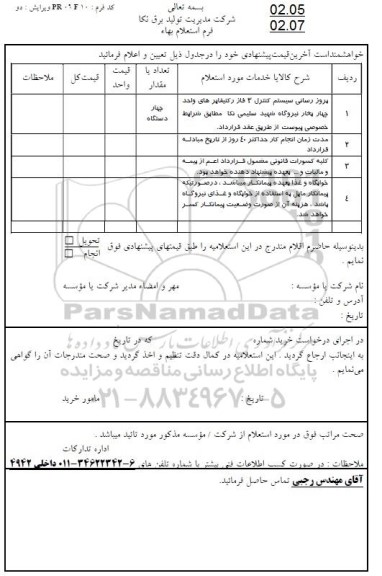 بسمه تعالی
شرکت مدیریت تولید برق نکا
فرم استعلام بهاء
کد فرم : PR ۰۹ F ۱۰ ویرایش : دو
02.05
02.07
خواهشمنداست آخرین قیمت پیشنهادی خود را درجدول ذیل تعیین و اعلام فرمائید
ردیف شرح کالایا خدمات مورد استعلام تعداد یا مقدار قیمت واحد قیمت کل ملاحظات
۱ بروز رسانی سیستم کنترل ۳ فاز رکتیفایر های واحد چهار دستگاه
چهار بخار نیروگاه شهید سلیمی نکا مطابق شرایط
خصوصی پیوست از طریق عقد قرارداد.
۲ مدت زمان انجام کار حداکثر ۴۰ روز از تاریخ مبادله
قرارداد
۳ کلیه کسورات قانونی مشمول قرارداد اعم از بیمه
و مالیات و ... بعهده پیشنهاد دهنده خواهد بود.
۴ خوابگاه و غذا بعهده پیمانکار میباشد ، درصورتیکه
پیمانکار مایل به استفاده از خوابگاه و غذای نیروگاه
باشد ، هزینه آن از صورت وضعیت پیمانکار کسر
خواهد شد.
بدینوسیله حاضرم اقلام مندرج در این استعلامیه را طبق قیمتهای پیشنهادی فوق تحویل انجام
نمایم .
نام شرکت یا مؤسسه : مهر و امضاء مدیر شرکت یا مؤسسه :
آدرس و تلفن :
تاریخ :
ParsNamadData
در اجرای درخواست خرید شماره که در تاریخ
به اینجانب ارجاع گردید . این استعلامیه در کمال دقت تنظیم و اخذ گردید و صحت مندرجات آن را گواهی
می‌نمایم .
پایگاه اطلاع رسانی مناقصه ومزایده
۰۲۱-۸۸۳۴۹۶۷۰-۵
تاریخ : مامور خرید
صحت مراتب فوق در مورد استعلام از شرکت / مؤسسه مذکور مورد تائید میباشد .
اداره تدارکات
ملاحظات : در صورت کسب اطلاعات فنی بیشتر با شماره تلفن های ۶-۳۴۶۲۲۳۴۲-۰۱۱ داخلی ۴۹۴۲
آقای مهندس رجبی تماس حاصل فرمائید.